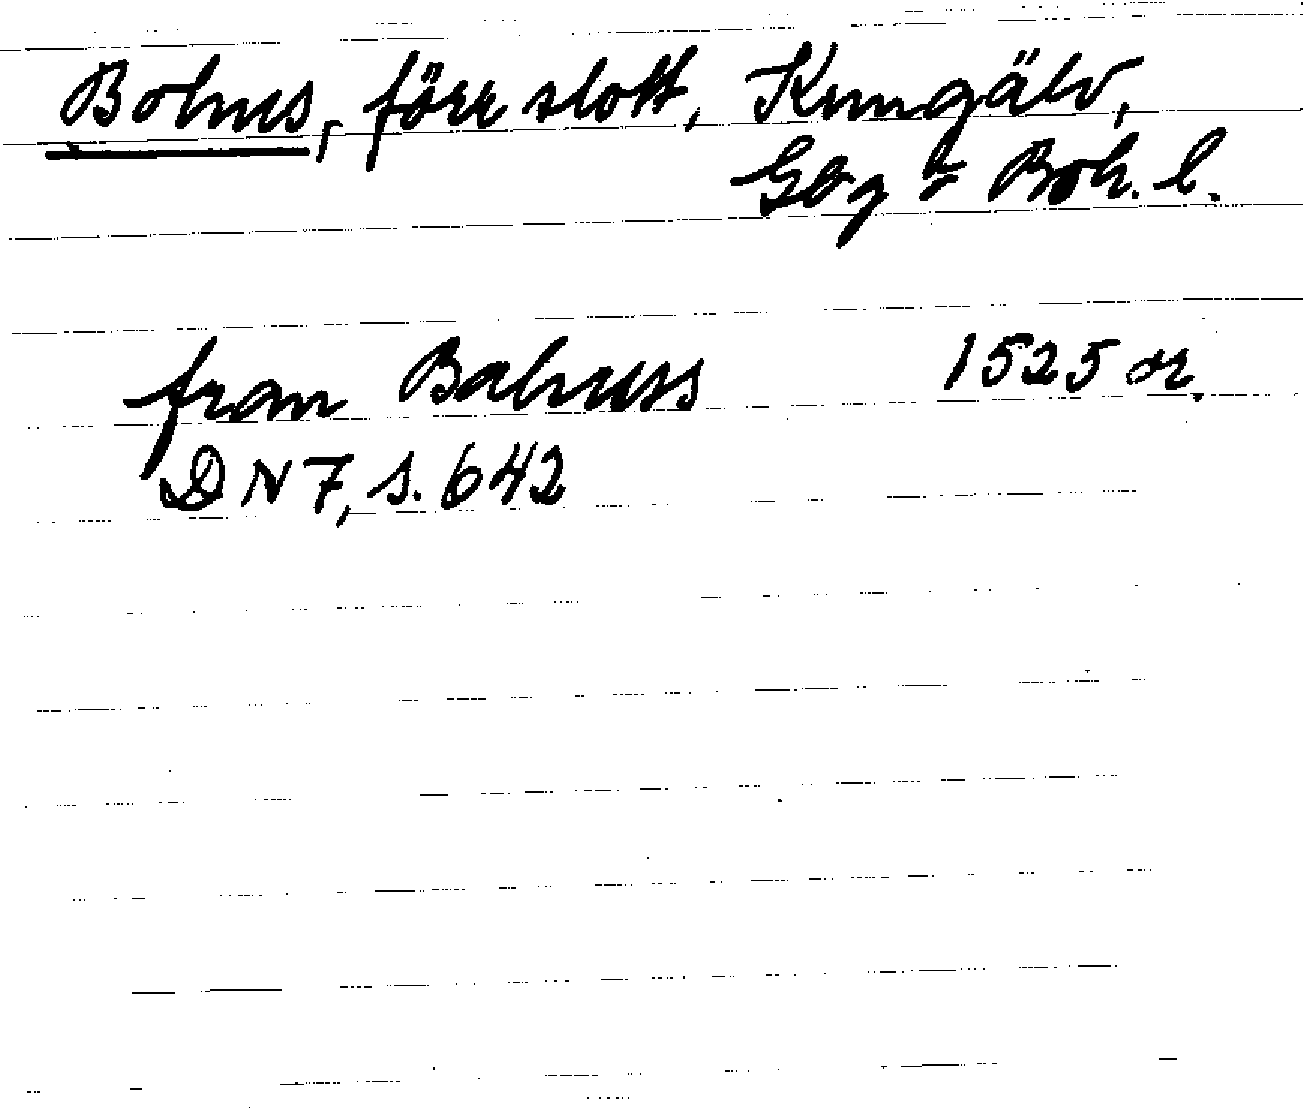 Bohus, förr slott, Kungälv,
Gbg o Boh. l.
fran Bahuss 1525 or.
DN 7, s. 642